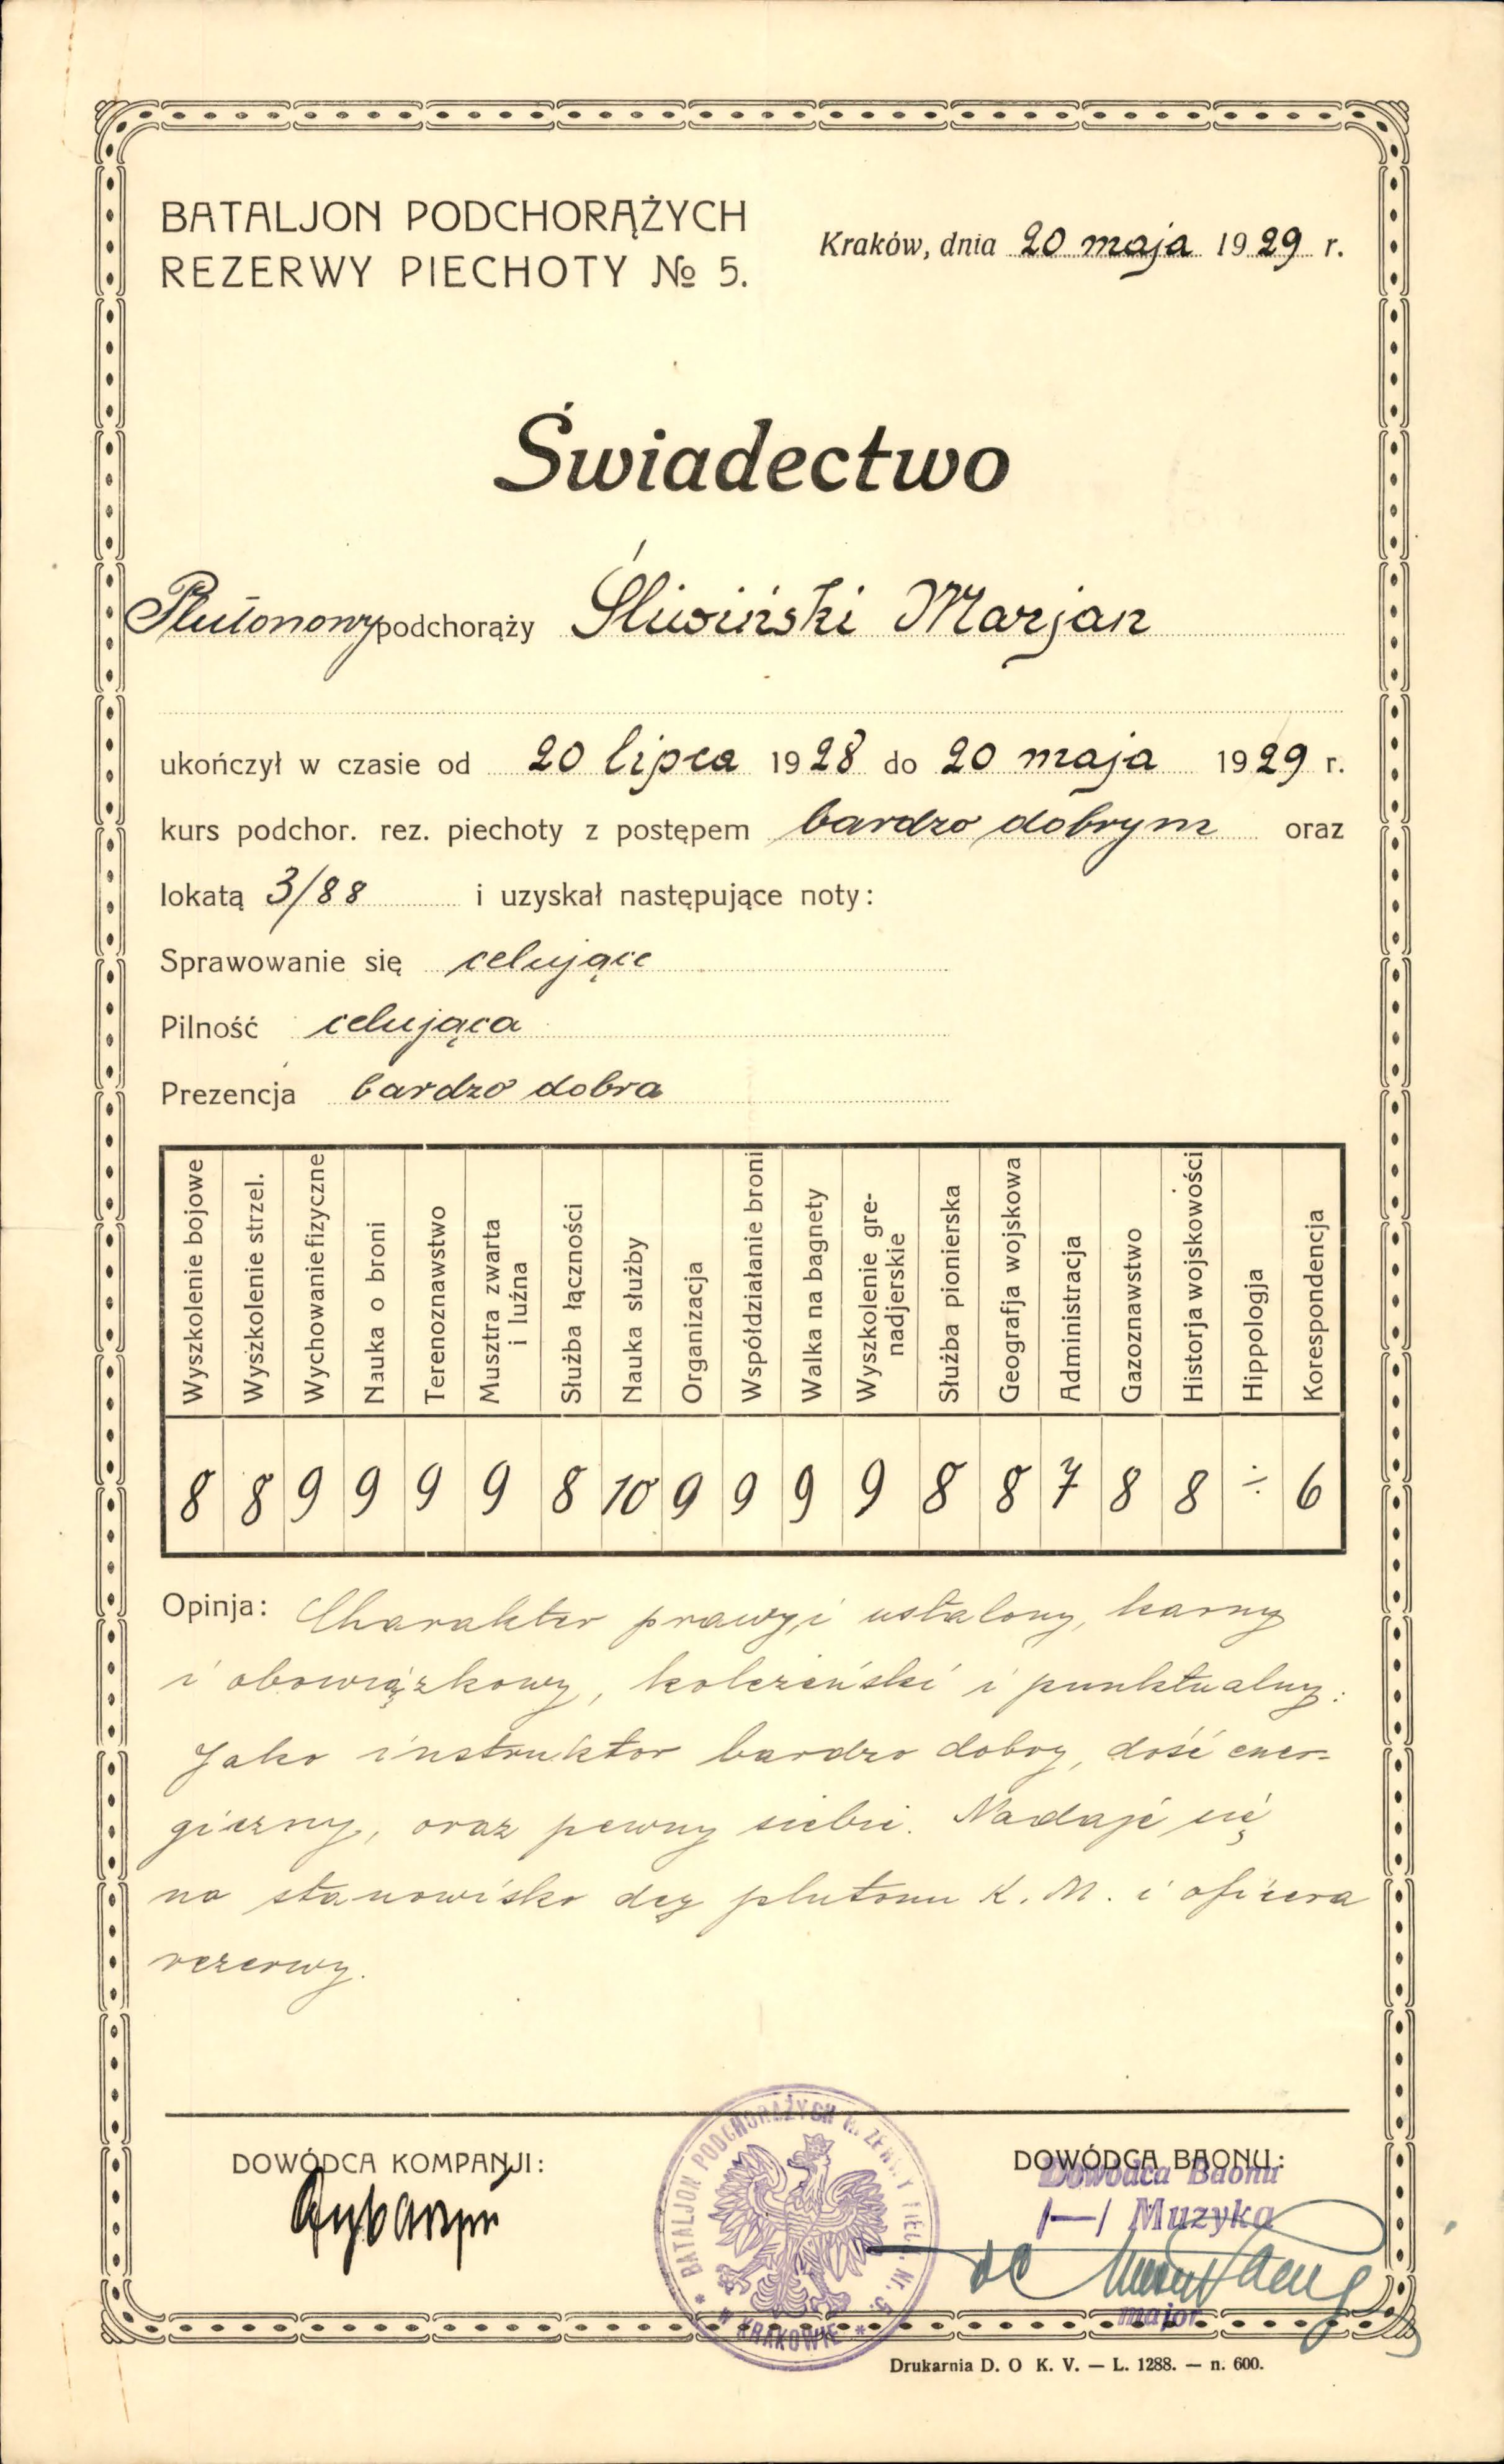 BATALJON PODCHORĄŻYCH
REZERWY PIECHOTY № 5.
Kraków, dnia 20 maja 1929 r.
Świadectwo
Plutonowy podchorąży Śliwiński Marjan
ukończył w czasie od 20 lipca 1928 do 20 maja 1929 r.
kurs podchor. rez. piechoty z postępem bardzo dobrym oraz
lokatą 3/88 i uzyskał następujące noty:
Sprawowanie się celujące
Pilność celująca
Prezencja bardzo dobra
Wyszkolenie bojowe
Wyszkolenie strzel.
Wychowanie fizyczne
Nauka o broni
Terenoznawstwo
Musztra zwarta
i luźna
Służba łączności
Nauka służby
Organizacja
Współdziałanie broni
Walka na bagnety
Wyszkolenie gre-
nadjerskie
Służba pionierska
Geografja wojskowa
Administracja
Gazoznawstwo
Historja wojskowości
Hippologja
Korespondencja
8 8 9 9 9 9 8 10 9 9 9 9 8 8 7 8 8 ÷ 6
Opinja: Charakter prawy i ustalony, karny
i obowiązkowy, koleżeński i punktualny.
Jako instruktor bardzo dobry, dość ener-
giczny, oraz pewny siebie. Nadaje się
na stanowisko dcy plutonu K. M. i oficera
rezerwy.
DOWÓDCA KOMPANJI:
DOWÓDCA BAONU:
Dowódca Baonu
/—/ Muzyka
major
BATALJON PODCHORĄŻYCH REZERWY PIECH. Nr. 5
* W KRAKOWIE *
Drukarnia D. O K. V. — L. 1288. — n. 600.